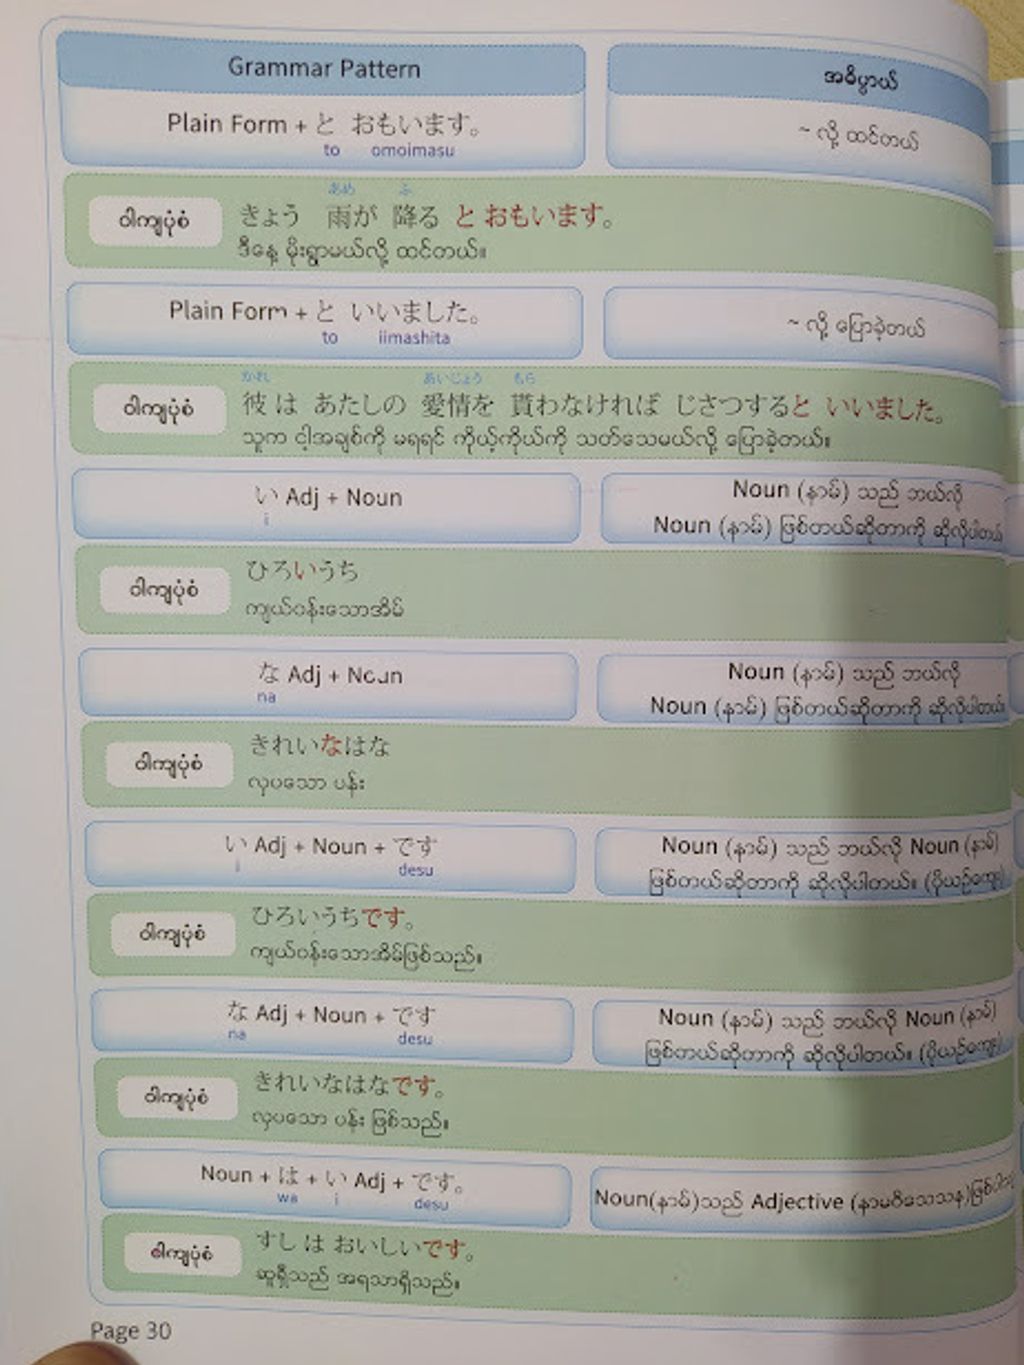 Grammar Pattern
အဓိပ္ပာယ်
Plain Form + と おもいます。
to omoimasu
~ လို့ ထင်တယ်
あめ ふ
ဝါကျပုံစံ
きょう 雨が 降る と おもいます。
ဒီနေ့ မိုးရွာမယ်လို့ ထင်တယ်။
Plain Form + と いいました。
to iimashita
~ လို့ ပြောခဲ့တယ်
かれ あいじょう もら
ဝါကျပုံစံ
彼 は あたしの 愛情を 貰わなければ じさつすると いいました。
သူက ငါ့အချစ်ကို မရရင် ကိုယ့်ကိုယ်ကို သတ်သေမယ်လို့ ပြောခဲ့တယ်။
い Adj + Noun
i
Noun (နာမ်) သည် ဘယ်လို
Noun (နာမ်) ဖြစ်တယ်ဆိုတာကို ဆိုလိုပါတယ်
ဝါကျပုံစံ
ひろいうち
ကျယ်ဝန်းသောအိမ်
な Adj + Noun
na
Noun (နာမ်) သည် ဘယ်လို
Noun (နာမ်) ဖြစ်တယ်ဆိုတာကို ဆိုလိုပါတယ်
ဝါကျပုံစံ
きれいなはな
လှပသော ပန်း
い Adj + Noun + です
i desu
Noun (နာမ်) သည် ဘယ်လို Noun (နာမ်)
ဖြစ်တယ်ဆိုတာကို ဆိုလိုပါတယ်။ (ပိုယဉ်ကျေး)
ဝါကျပုံစံ
ひろいうちです。
ကျယ်ဝန်းသောအိမ်ဖြစ်သည်။
な Adj + Noun + です
na desu
Noun (နာမ်) သည် ဘယ်လို Noun (နာမ်)
ဖြစ်တယ်ဆိုတာကို ဆိုလိုပါတယ်။ (ပိုယဉ်ကျေး)
ဝါကျပုံစံ
きれいなはなです。
လှပသော ပန်း ဖြစ်သည်။
Noun + は + い Adj + です。
wa i desu
Noun(နာမ်)သည် Adjective (နာမဝိသေသန)
ဝါကျပုံစံ
すし は おいしいです。
ဆူရှီသည် အရသာရှိသည်။
Page 30